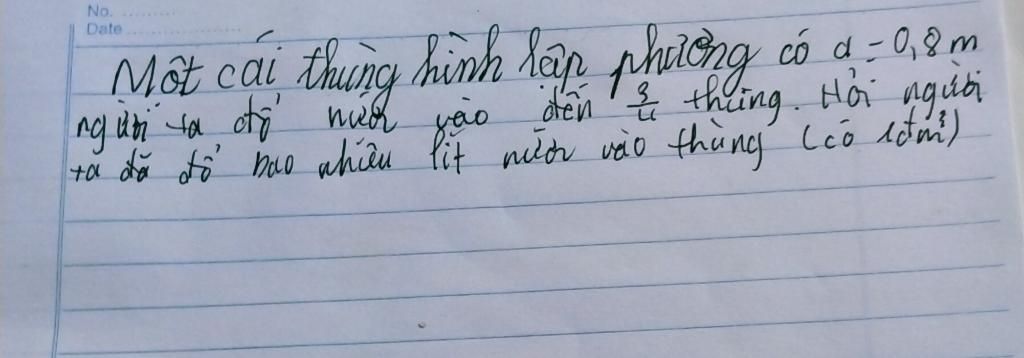 No. ............
Date ........................
Một cái thùng hình lập phương có a = 0,8 m
người ta đổ nước vào đến 3/4 thùng. Hỏi người
ta đã đổ bao nhiêu lít nước vào thùng (có 1đm³)